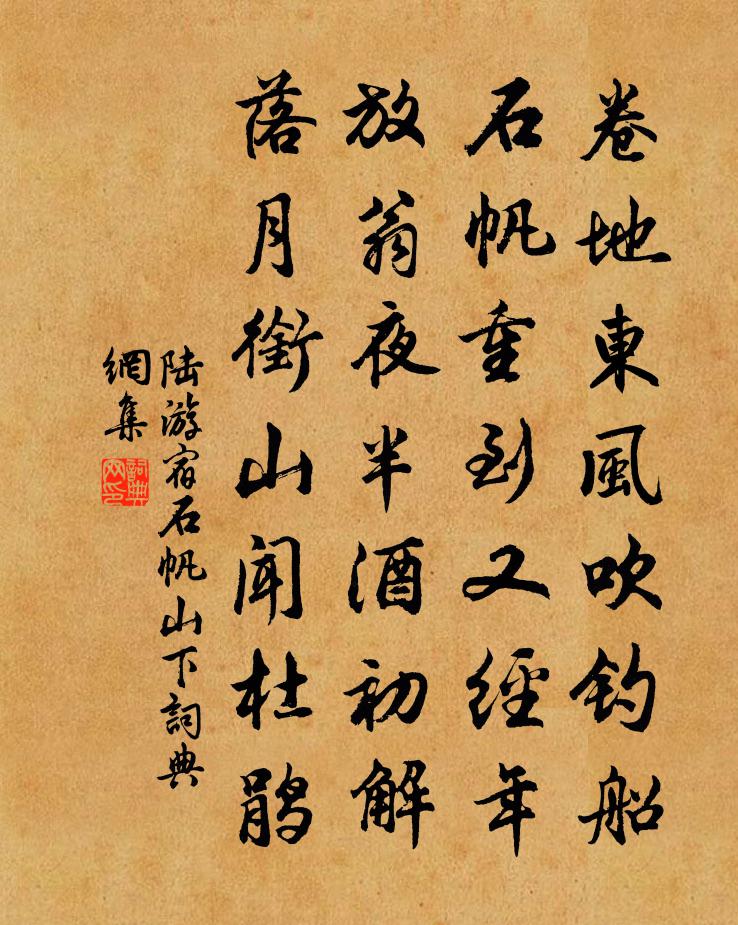 卷地東風吹钓船
石帆重到又經年
放翁夜半酒初解
落月銜山闻杜鹃
陆游宿石帆山下詞典
網集
詞典
网印